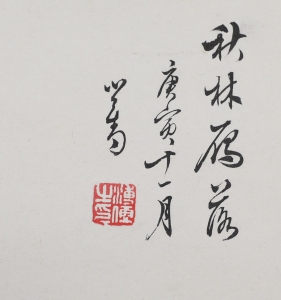 秋林雁落
庚寅十一月
心畬
溥儒之印